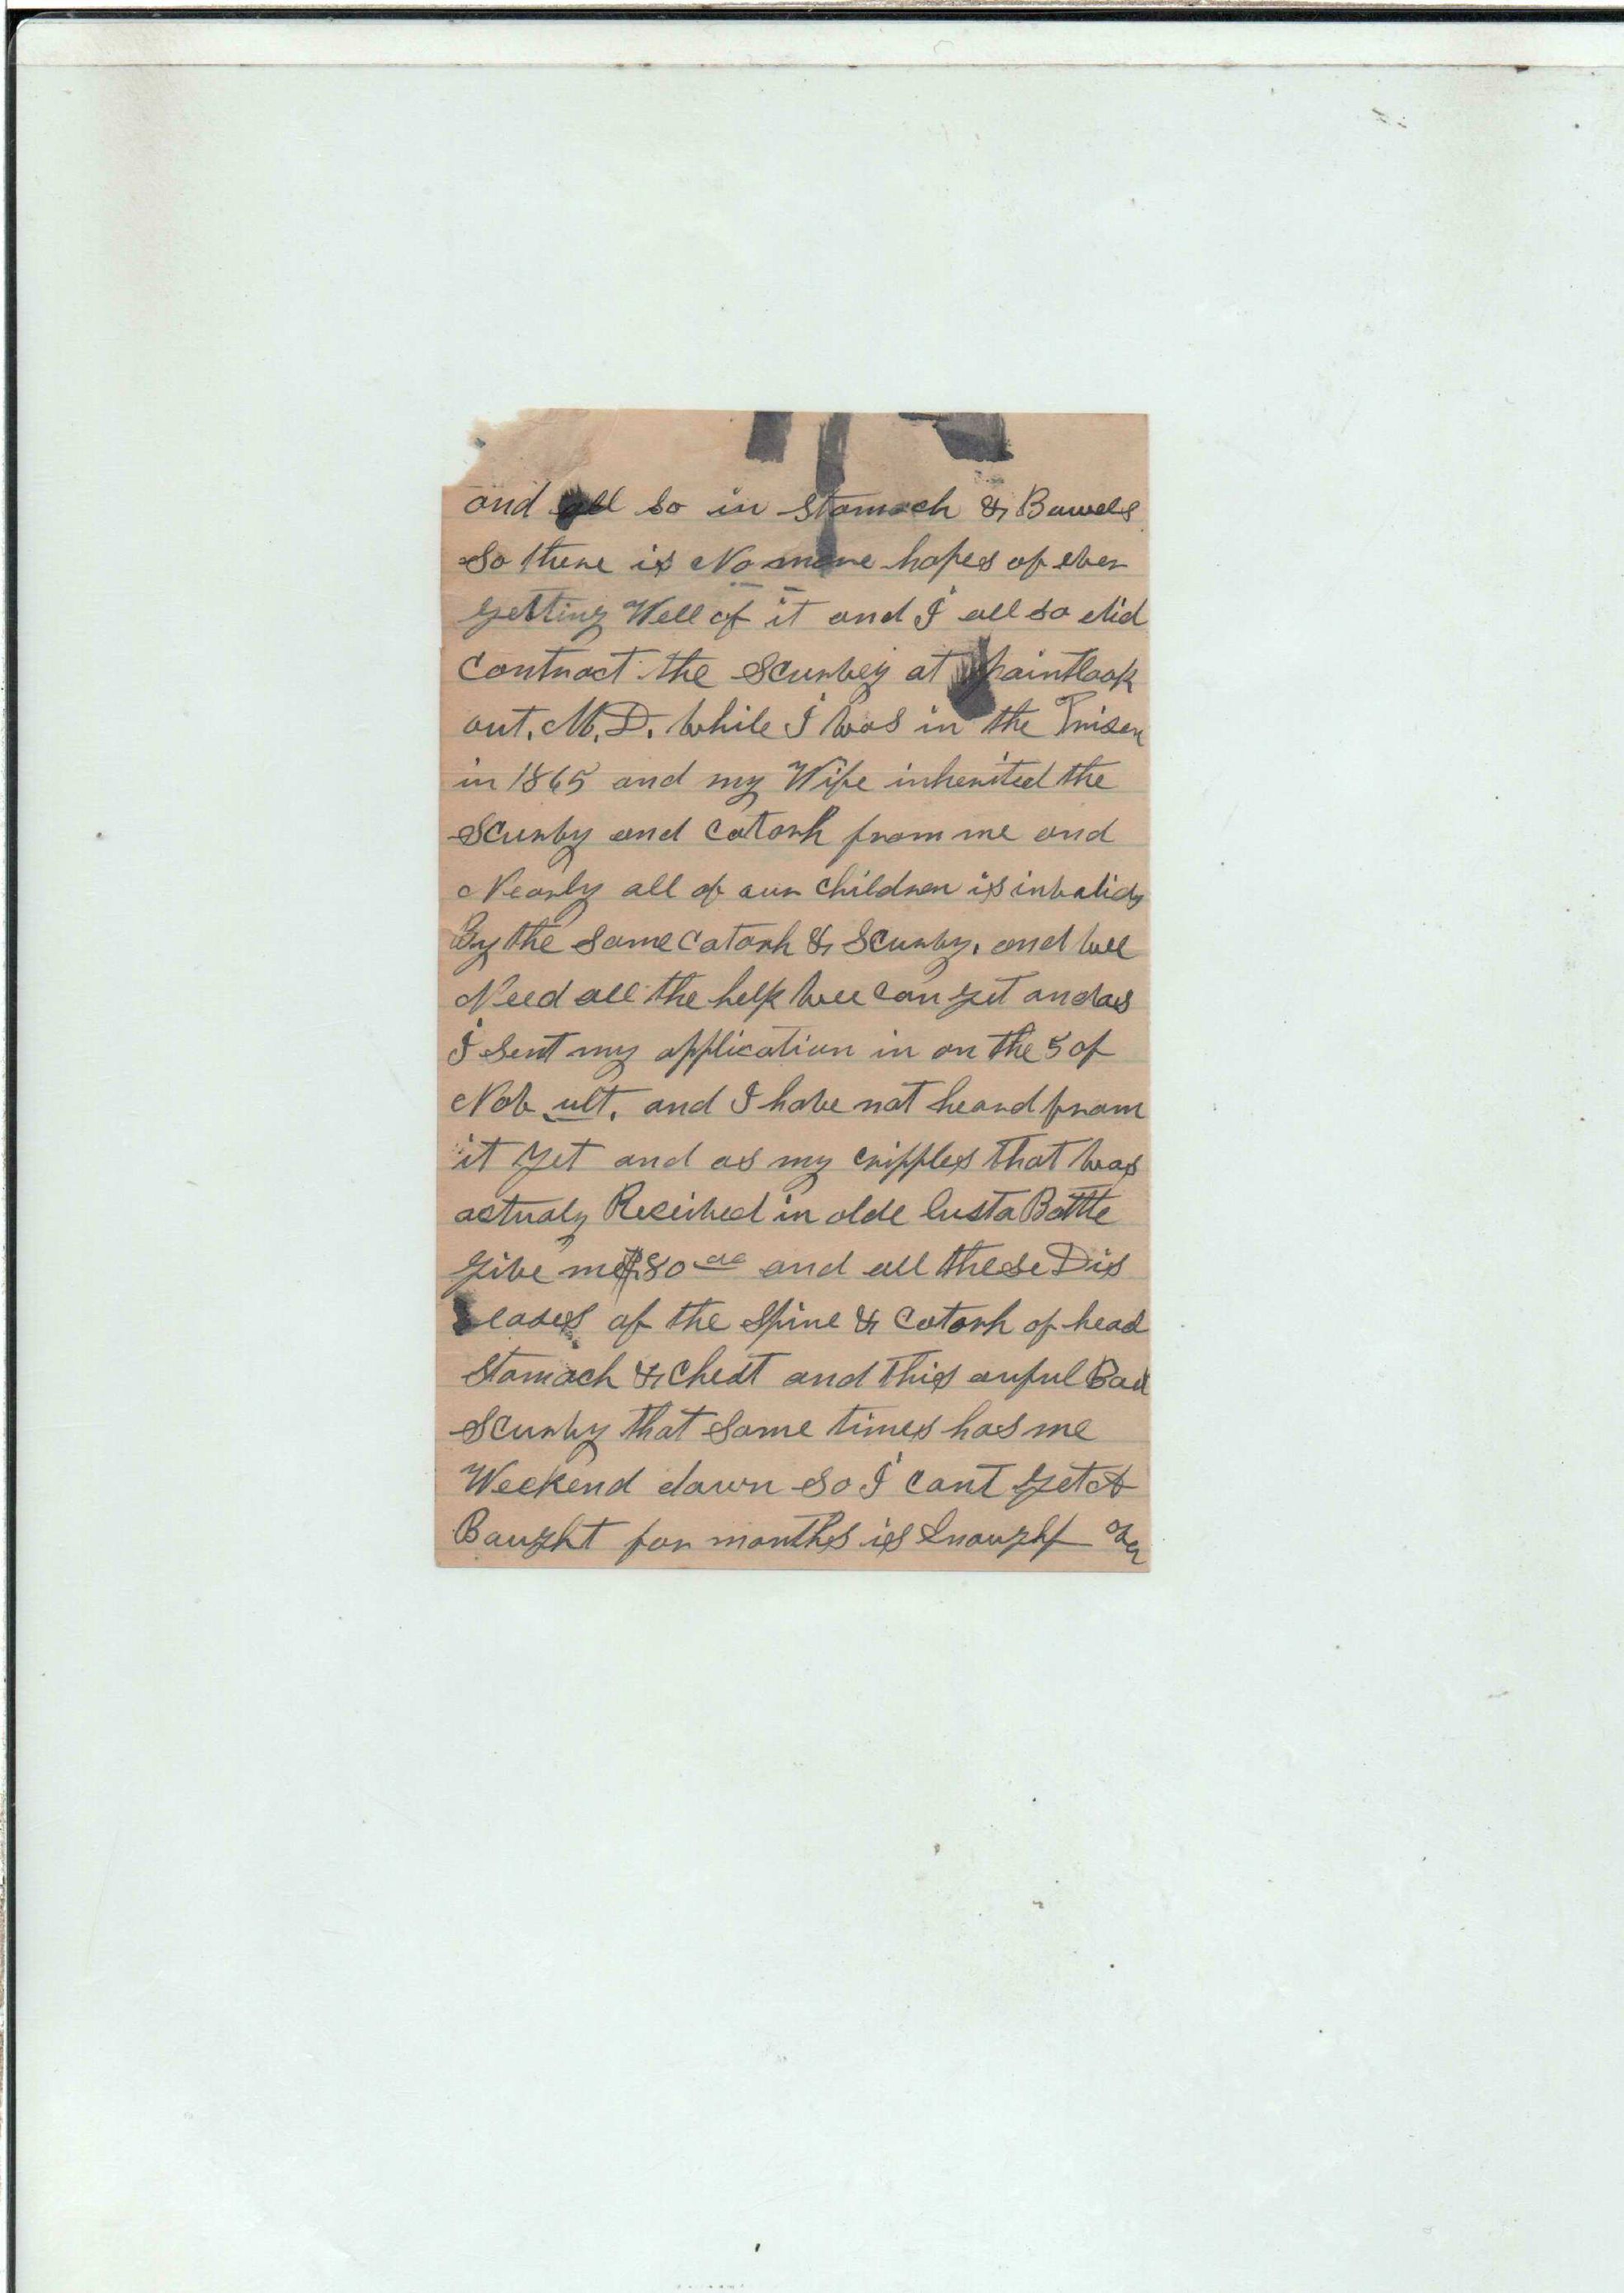 and all so in Stomach & Bowels
So there is No more hopes of ever
getting Well of it and I all so did
Contract the Scurvey at paintlook
out, M,D, while I was in the Prison
in 1865 and my Wife inherited the
Scurvy and Catorh from me and
Nearly all of our Children is invalids
By the Same Catorh & Scurvy, and wee
Need all the help wee can get and as
I sent my application in on the 5 of
Nov ult, and I have not heard from
it yet and as my cripples that was
actualy Received in olde lusta Battle
give me $80 00 and all these Dis
eases of the Spine & Catorh of head
Stomach & Chest and this awful Bad
Scurvy that Some times has me
Weekend down So I cant get A
Baught for months is Enought